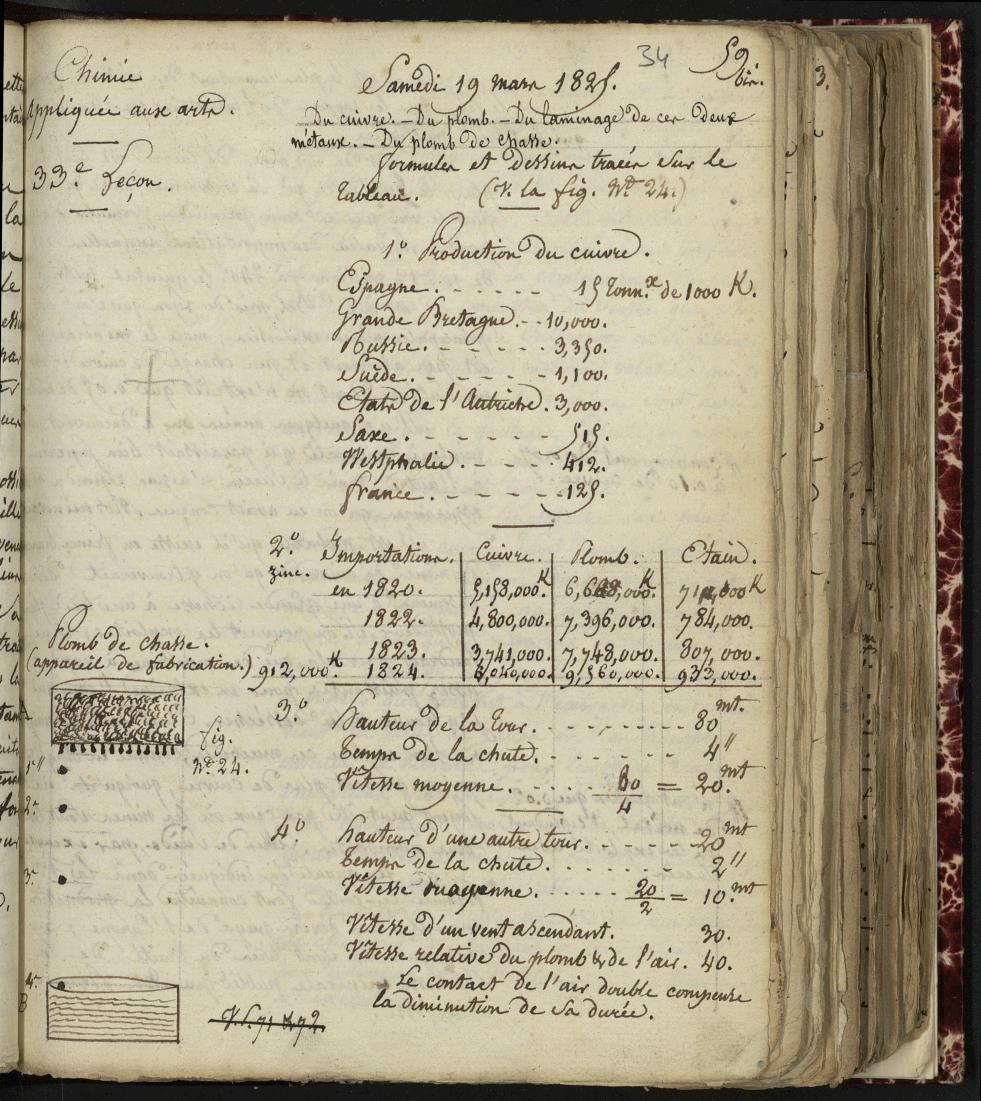 34
59 bis.
3.
Chimie
appliquée aux arts.
33.e Leçon.
Samedi 19 mars 1825.
Du cuivre. – Du plomb. – Du laminage de ces deux
métaux. – Du plomb de chasse.
formules et dessins tracés sur le
tableau. (V. la fig. No. 24.)
1.o Production du cuivre.
Espagne. . . . . . . 15 tonn.x de 1000 K.
Grande Bretagne. . . 10,000.
Russie. . . . . . . 3,350.
Suède. . . . . . . 1,100.
Etats de l'Autriche. 3,000.
Saxe. . . . . . . 515.
Westphalie. . . . . 412.
france. . . . . . . 125.
2.o Importations. Cuivre. Plomb. Etain.
zinc.
en 1820. 5,158,000.K 6,6 ,000.K 71 ,000K
1822. 4,800,000. 7,396,000. 784,000.
1823. 3,741,000. 7,748,000. 807,000.
912,000.K 1824. ,040,000. 9,560,000. 933,000.
Plomb de chasse.
(appareil de fabrication.)
fig.
No. 24.
1"
2"
3"
4"
B
3.o Hauteur de la tour. . . . . . . . . 80 mt.
Temps de la chute. . . . . . . 4"
Vitesse moyenne. . . . . . 80/4 = 20. mt
4.o hauteur d'une autre tour. . . . . . 20 mt
Temps de la chute. . . . . . . . 2"
Vitesse moyenne. . . . . . 20/2 = 10. mt
Vitesse d'un vent ascendant. 30.
Vitesse relative du plomb & de l'air. 40.
Le contact de l'air double compense
la diminution de sa durée.
V. S. 71 & 72.